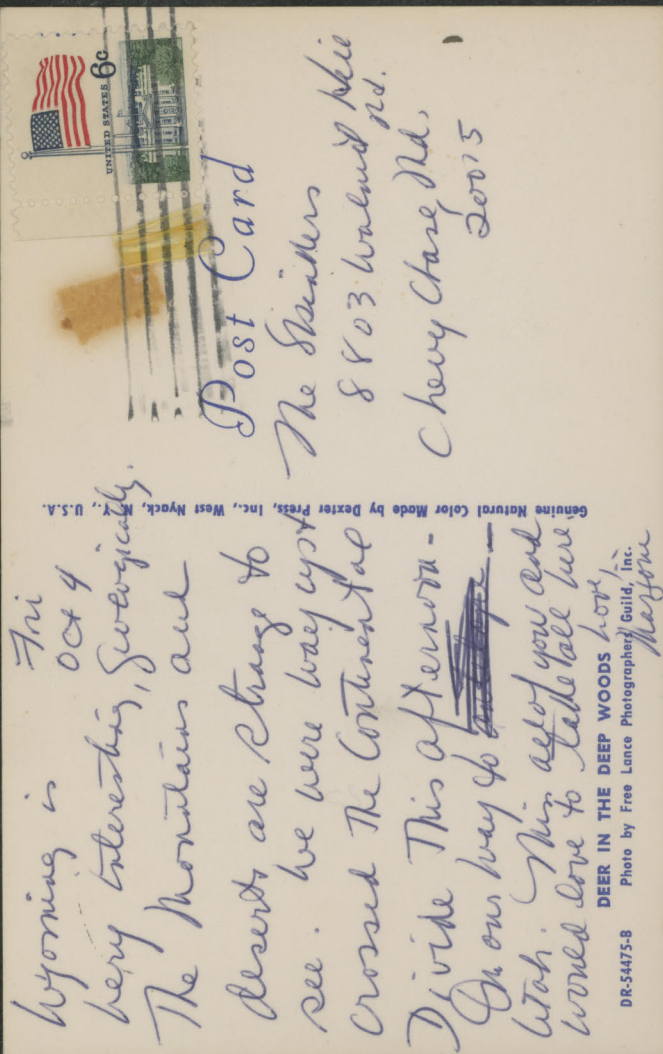 Fri
Oct 4
Wyoming is
very interesting, geologically.
The Mountains and
deserts are strange to
see. We were way up &
crossed the Continental
Divide This afternoon -
On our way to
Utah. Miss all of you and
would love to have all here.
Love,
DEER IN THE DEEP WOODS
DR-54475-B Photo by Free Lance Photographers Guild, Inc.
Genuine Natural Color Made by Dexter Press, Inc., West Nyack, N. Y., U.S.A.
UNITED STATES 6c
Post Card
The
8803 Walnut Hill
Rd.
Chevy Chase, Md.
20015